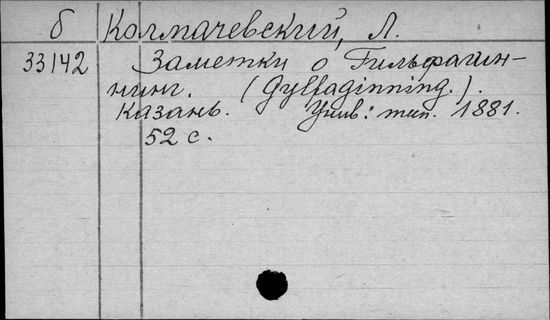 б Колмачевский, Л.
33142 Заметки о Гильфагин-
нинг. (Gylfaginning.).
Казань. Унив: тип. 1881.
52 с.